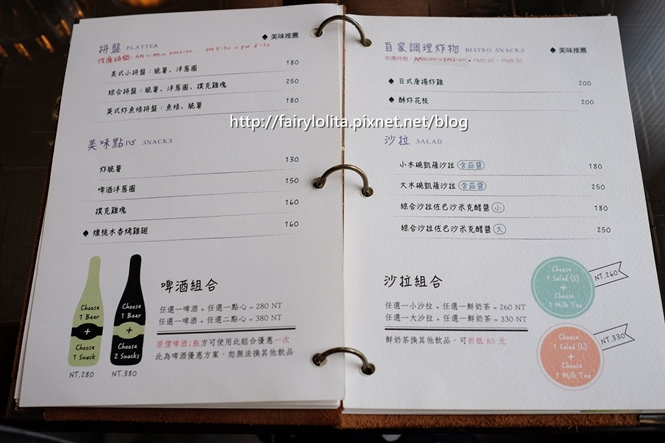 拼盤 PLATTER
♠ 美味推薦
美式小拼盤：脆薯、洋蔥圈 180
綜合拼盤：脆薯、洋蔥圈、撲克雞塊 250
英式炸魚條拼盤：魚條、脆薯 180
美味點心 SNACKS
炸脆薯 130
啤酒洋蔥圈 150
撲克雞塊 160
♠ 煙燻木香烤雞翅 160
Choose
1 Beer
+
Choose
1 Snack
NT.280
Choose
1 Beer
+
Choose
2 Snacks
NT.380
啤酒組合
任選一啤酒 + 任選一點心 = 280 NT
任選一啤酒 + 任選二點心 = 380 NT
原價啤酒1瓶方可使用此組合優惠一次
此為啤酒優惠方案，恕無法換其他飲品
http://fairylolita.pixnet.net/blog
♠ 美味推薦
自家調理炸物 BISTRO SNACKS
♠ 日式唐揚炸雞 200
♠ 酥炸花枝 200
沙拉 SALAD
小木碗凱薩沙拉 含蒜醬 180
大木碗凱薩沙拉 含蒜醬 250
綜合沙拉佐巴沙米克醋醬 小 180
綜合沙拉佐巴沙米克醋醬 大 250
沙拉組合
任選一小沙拉 + 任選一鮮奶茶 = 260 NT
任選一大沙拉 + 任選一鮮奶茶 = 330 NT
鮮奶茶換其他飲品，可折抵 85 元
Choose
1 Salad (S)
+
Choose
1 Milk Tea
NT.260
Choose
1 Salad (L)
+
Choose
1 Milk Tea
NT.330